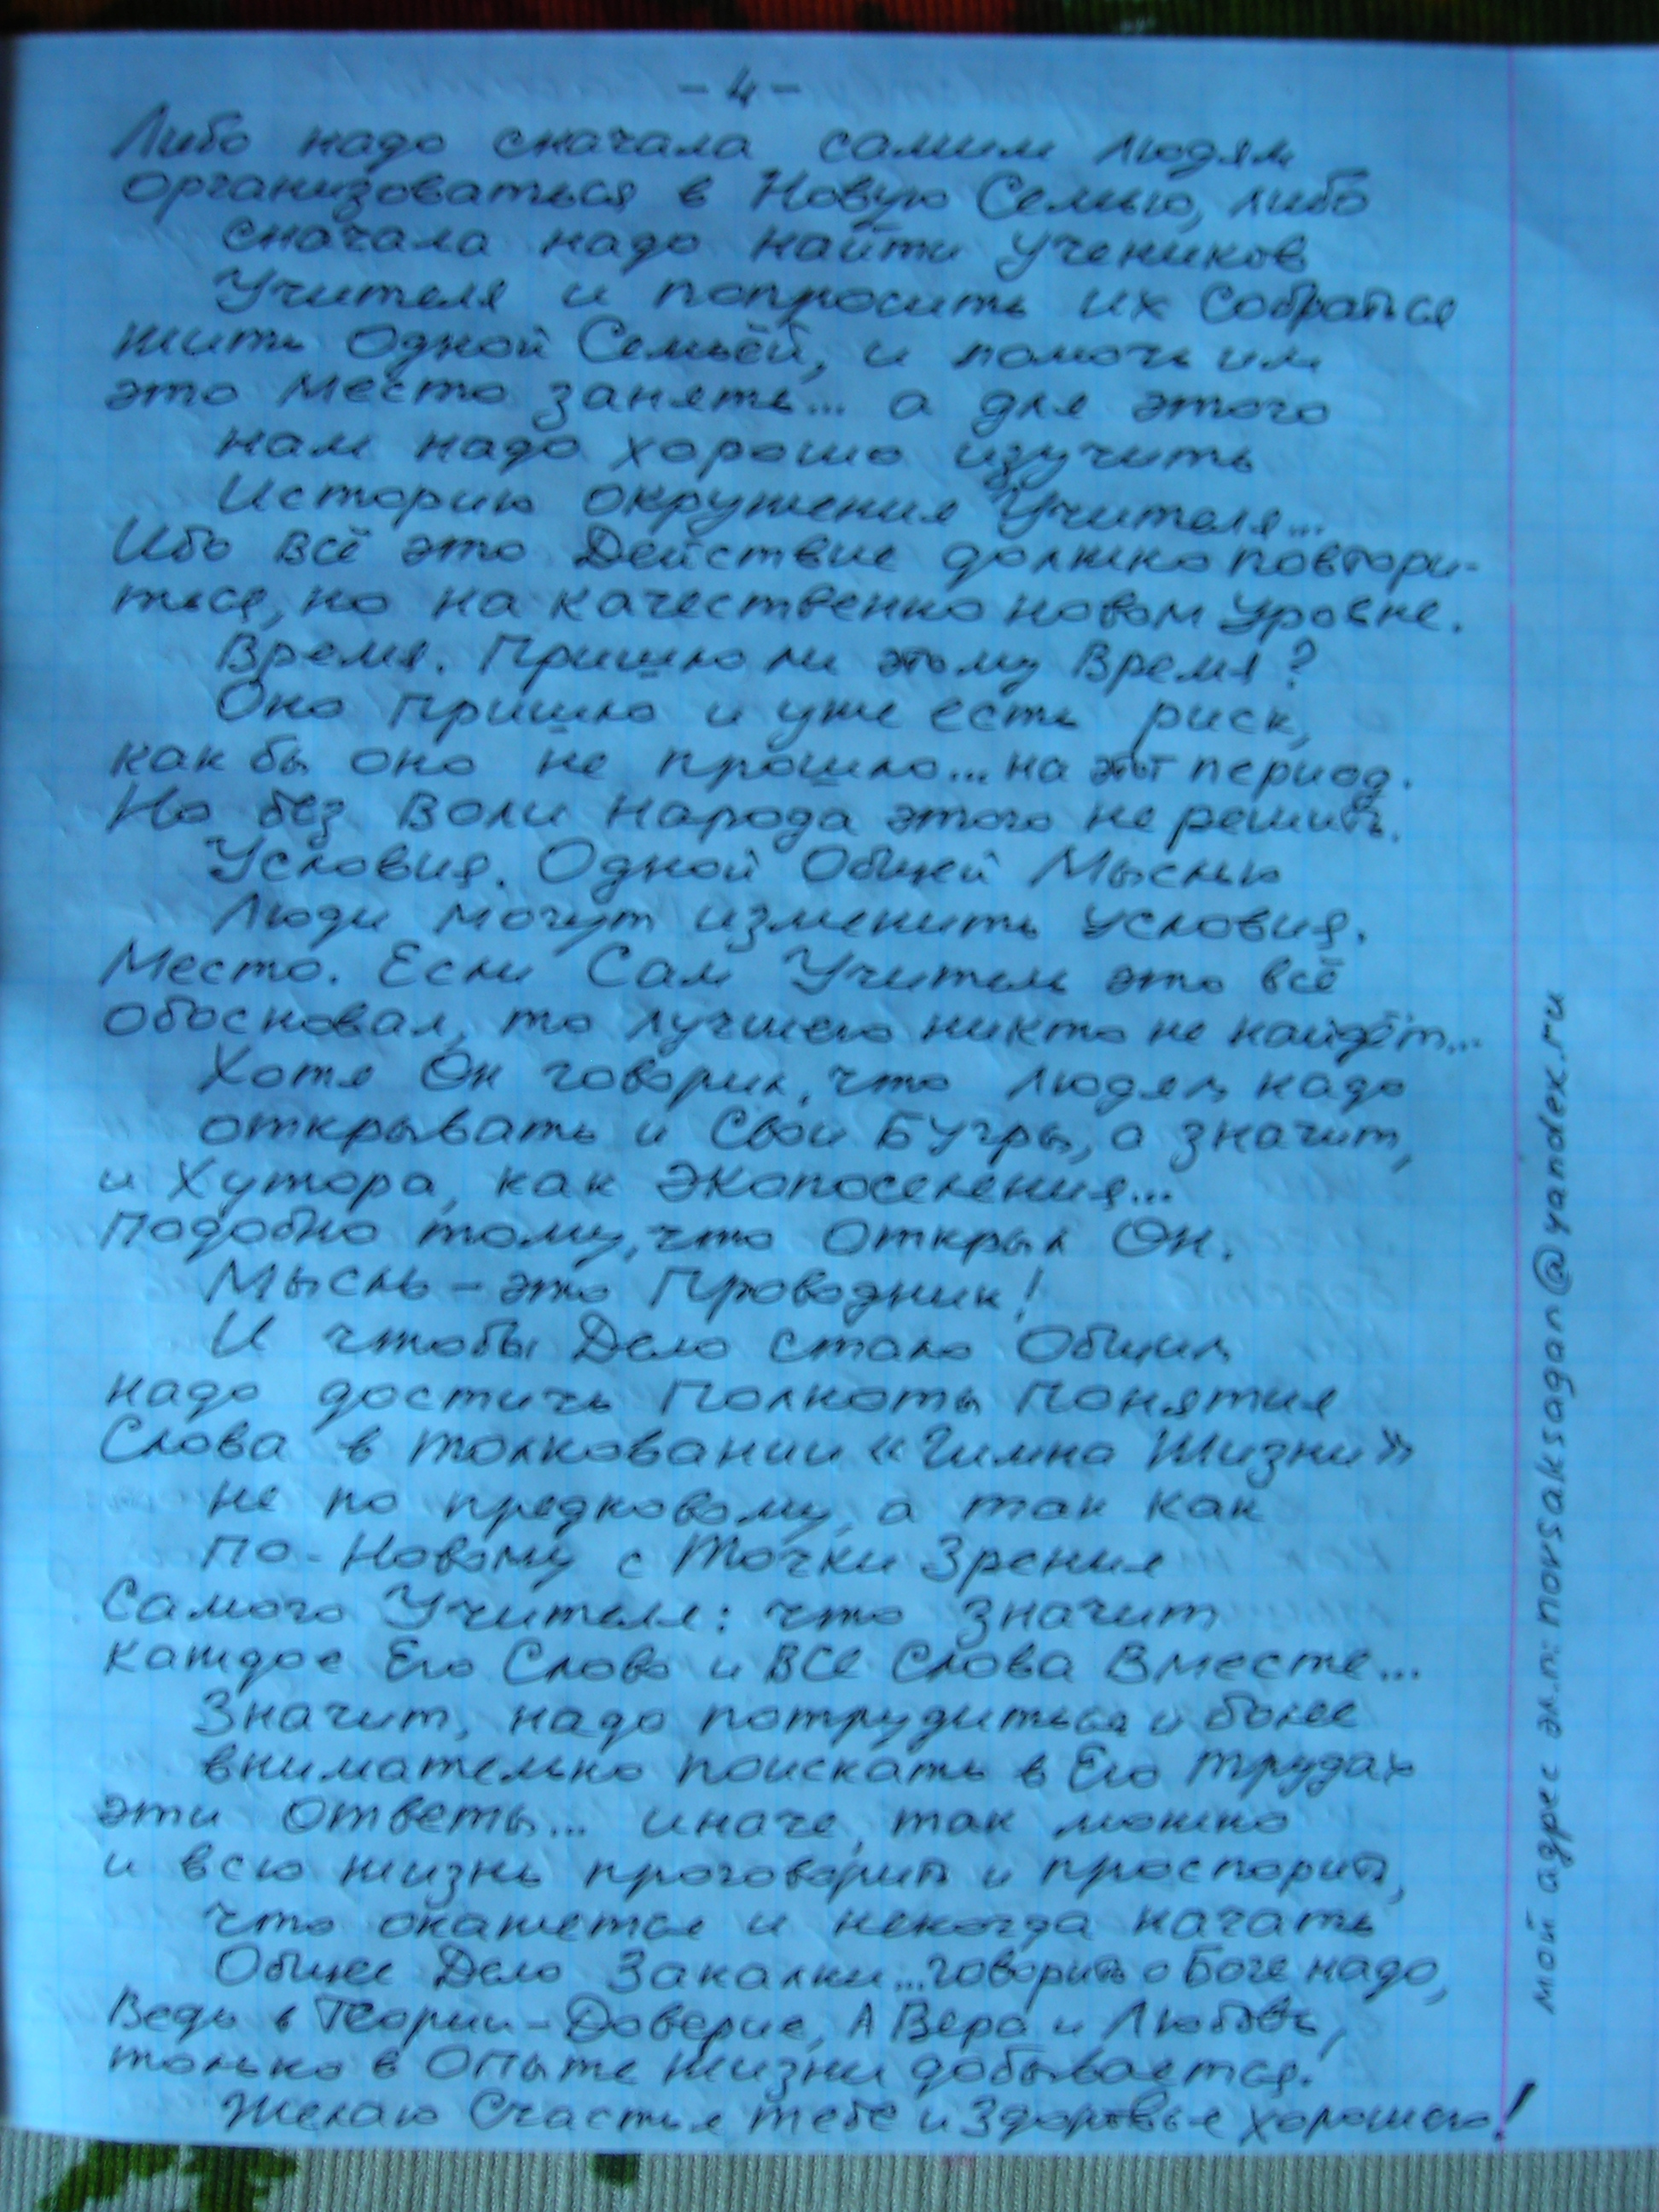 - 4 -
Либо надо сначала самим людям
организоваться в Новую Семью, либо
сначала надо найти учеников
Учителя и попросить их собраться
жить одной Семьёй, и помочь им
это место занять... а для этого
нам надо хорошо изучить
Историю окружения Учителя...
Ибо всё это Действие должно повтори-
ться, но на качественно новом уровне.
Время. Пришло ли этому Время?
Оно пришло и уже есть риск,
как бы оно не прошло... на этот период.
Но без Воли Народа этого не решить.
Условия. Одной Общей Мыслью
Люди могут изменить условия.
Место. Если Сам Учитель это всё
обосновал, то лучшего никто не найдёт...
Хотя Он говорил, что людям надо
открывать и Свои Бугры, а значит,
и Хутора, как экопоселения...
подобно тому, что Открыл Он.
Мысль - это Проводник!
И чтобы Дело стало Общим
надо достичь Полноты Понятия
Слова в толковании «Гимна Жизни»
не по предковому, а так как
по-Новому с Точки Зрения
Самого Учителя: что значит
каждое Его Слово и ВСЕ Слова Вместе...
Значит, надо потрудиться и более
внимательно поискать в Его трудах
эти ответы... иначе, так можно
и всю жизнь проговорить и проспорить,
что окажется и некогда начать
Общее Дело Закалки... говорить о Боге надо,
Ведь в Теории - Доверие, А Вера и Любовь,
только в Опыте жизни добывается.
Желаю Счастья тебе и Здоровья хорошего!
мой адрес эл.п: novsaksagan@yandex.ru